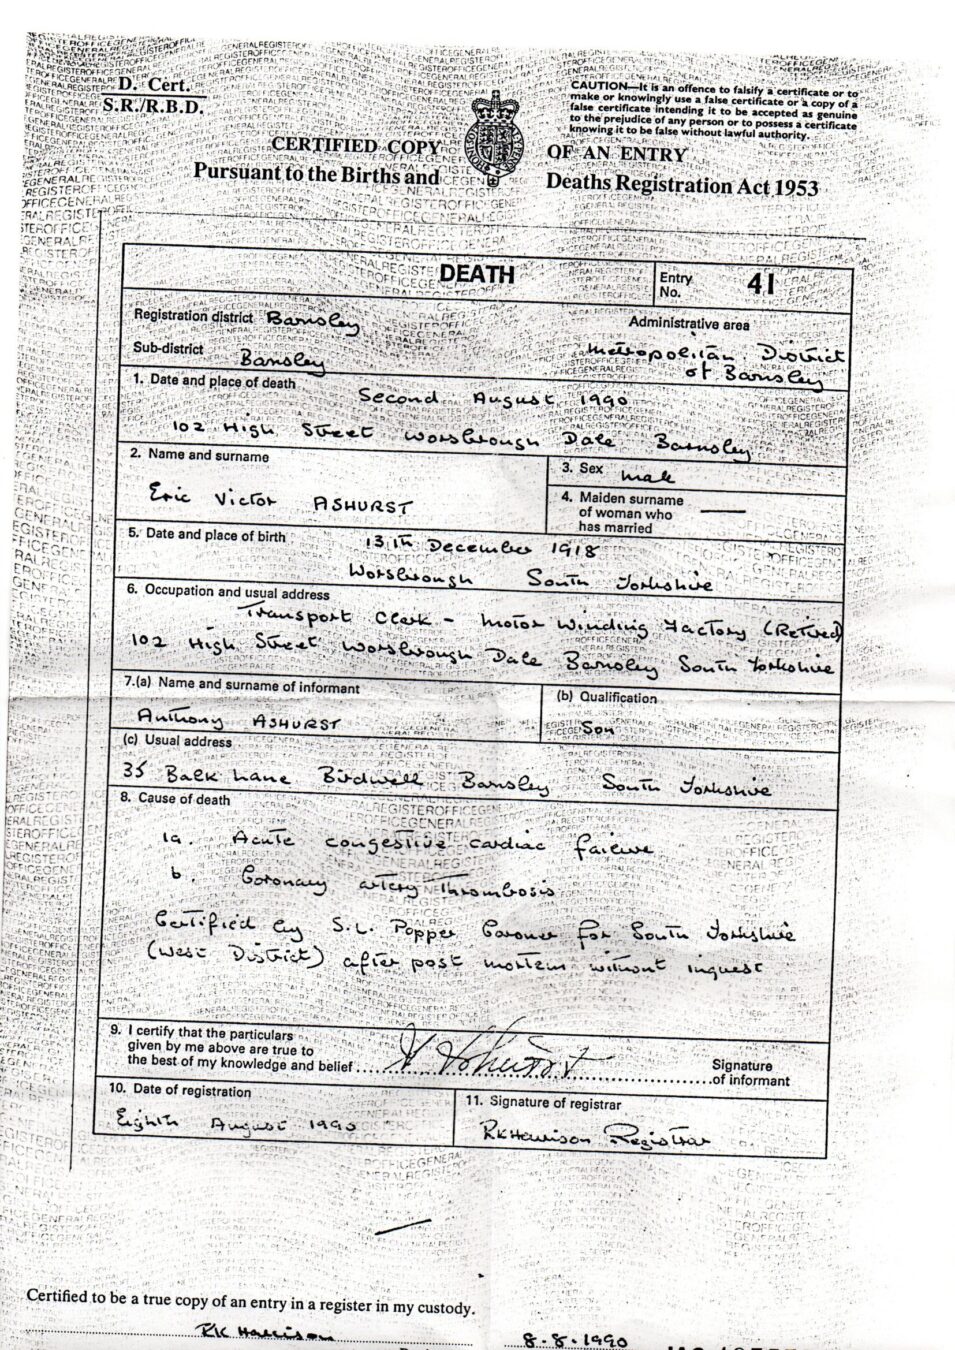 D. Cert.
S.R./R.B.D.
CAUTION—It is an offence to falsify a certificate or to
make or knowingly use a false certificate or a copy of a
false certificate intending it to be accepted as genuine
to the prejudice of any person or to possess a certificate
knowing it to be false without lawful authority.
CERTIFIED COPY OF AN ENTRY
Pursuant to the Births and Deaths Registration Act 1953
DEATH
Entry No. 41
Registration district Barnsley
Administrative area
Sub-district Barnsley
Metropolitan District
of Barnsley
1. Date and place of death
Second August 1990
102 High Street Worsbrough Dale Barnsley
2. Name and surname
Eric Victor ASHURST
3. Sex male
4. Maiden surname
of woman who
has married —
5. Date and place of birth
13th December 1918
Worsbrough South Yorkshire
6. Occupation and usual address
Transport Clerk - Motor Winding Factory (Retired)
102 High Street Worsbrough Dale Barnsley South Yorkshire
7.(a) Name and surname of informant
Anthony ASHURST
(b) Qualification
Son
(c) Usual address
35 Balk Lane Birdwell Barnsley South Yorkshire
8. Cause of death
1a. Acute congestive cardiac failure
b. Coronary artery thrombosis
Certified by S.L. Popper Coroner for South Yorkshire
(West District) after post mortem without inquest
9. I certify that the particulars
given by me above are true to
the best of my knowledge and belief
A Ashurst
Signature
of informant
10. Date of registration
Eighth August 1990
11. Signature of registrar
RKHarrison Registrar
Certified to be a true copy of an entry in a register in my custody.
RK Harrison
8.8.1990